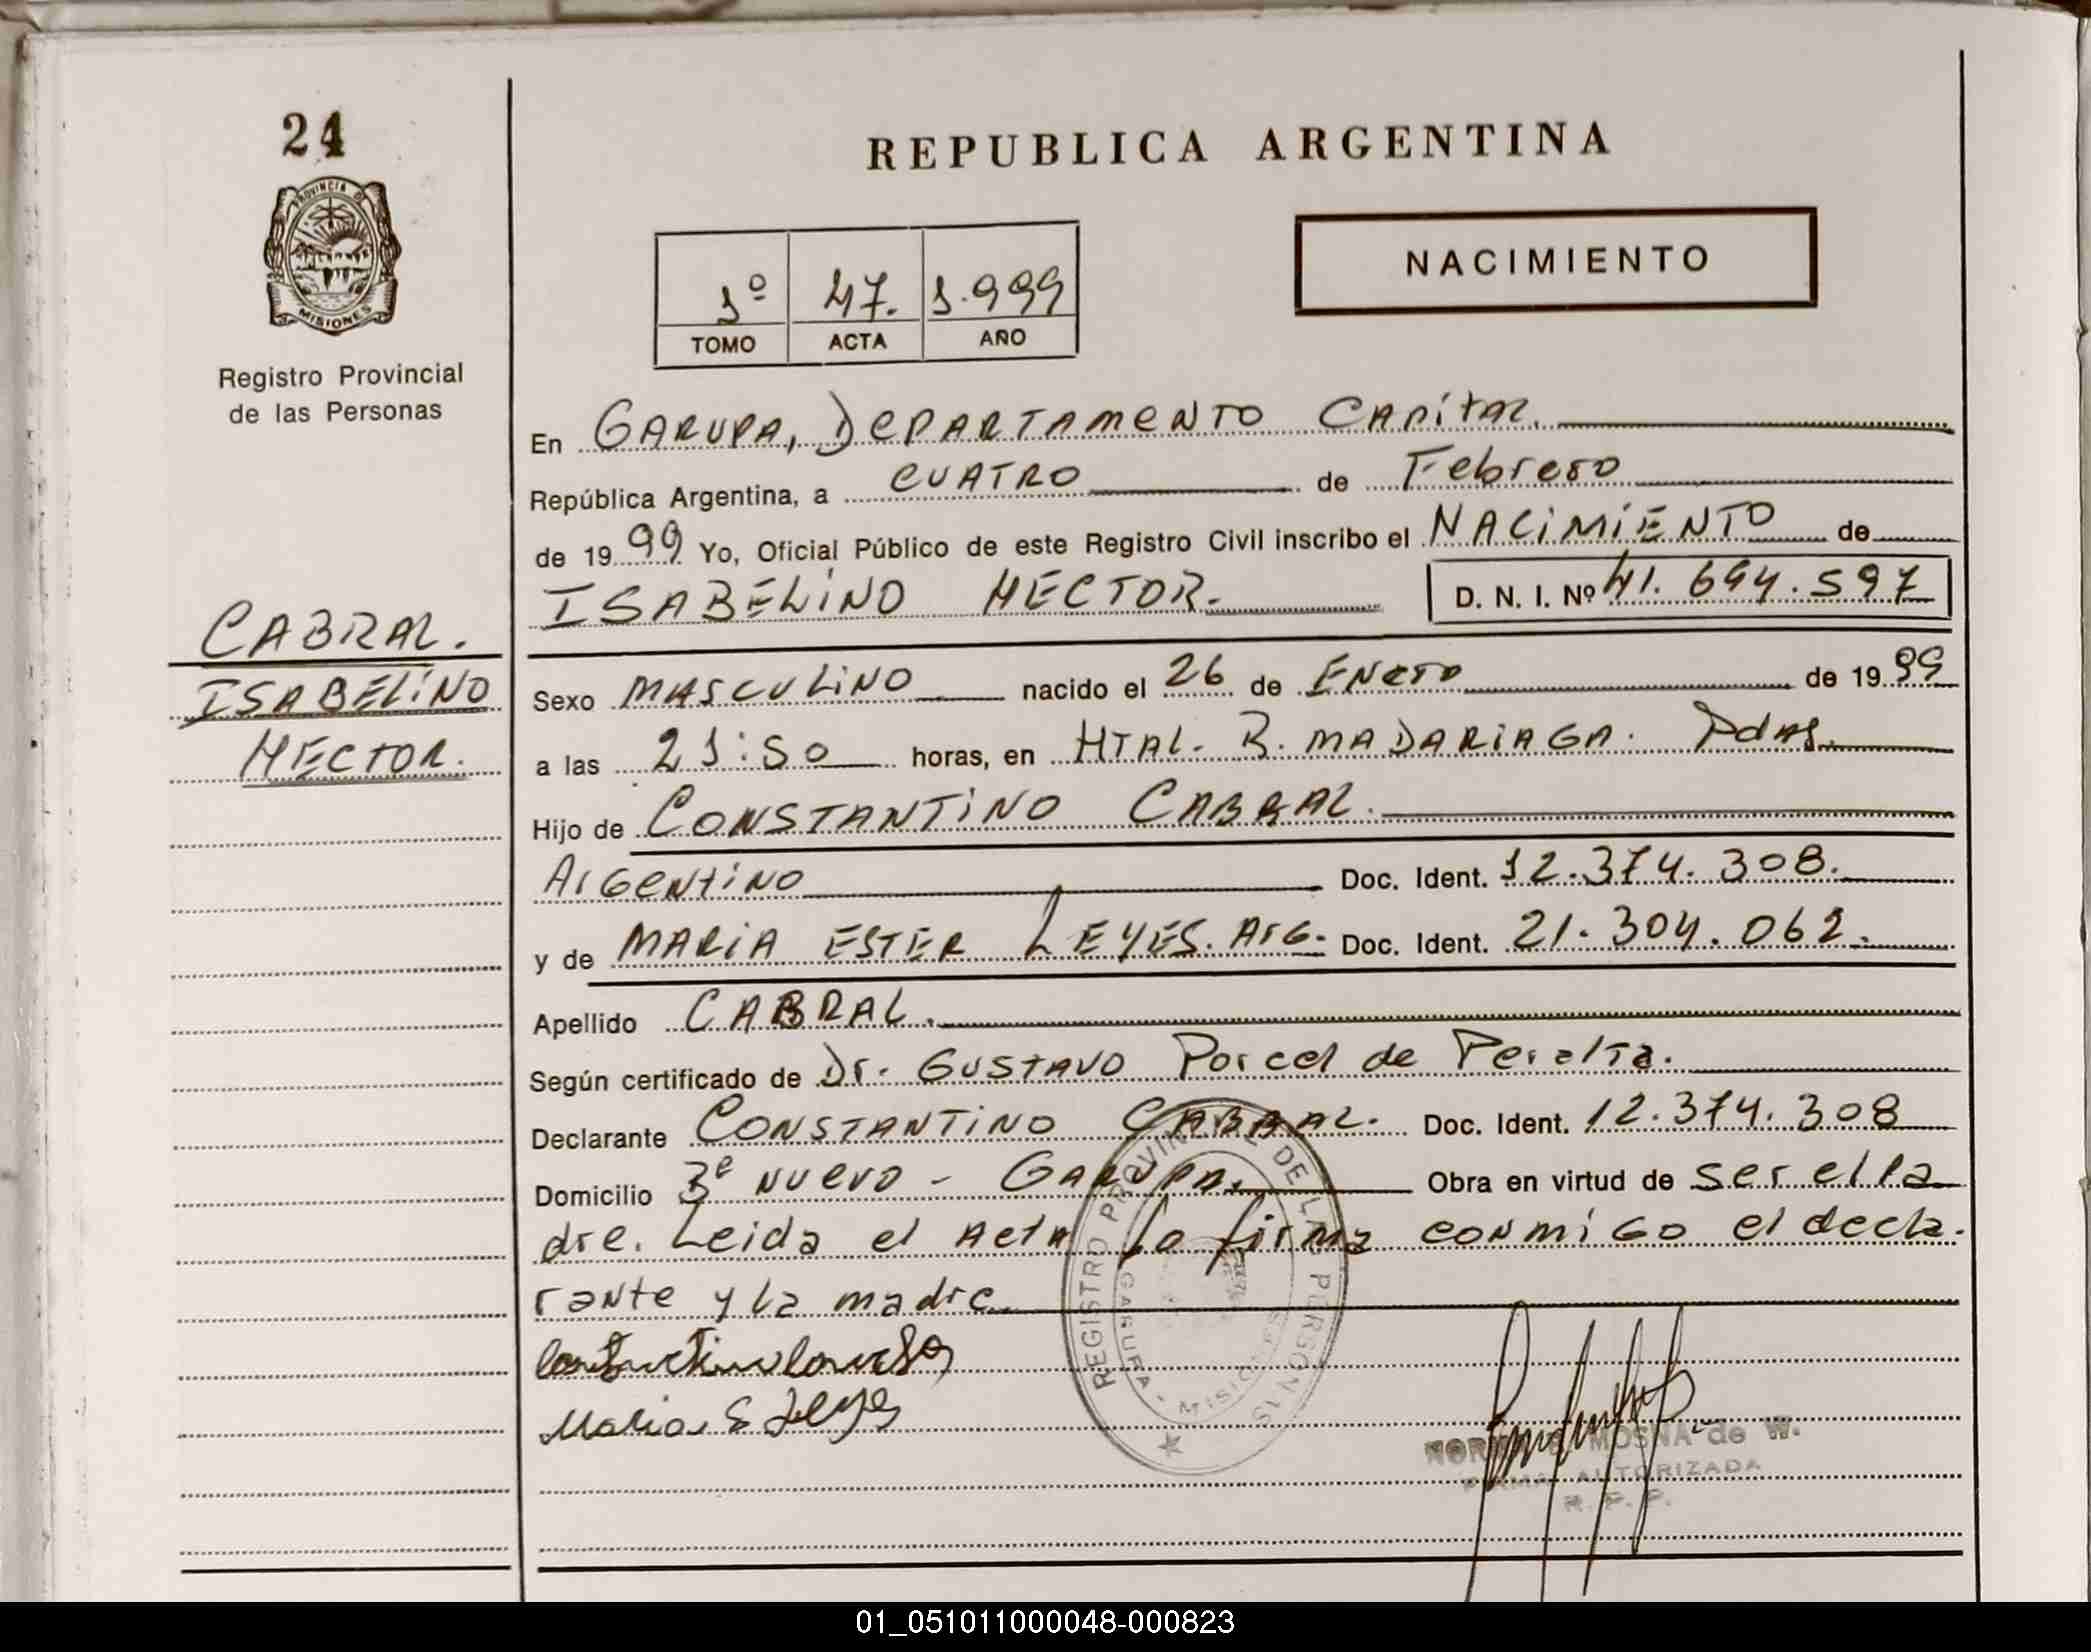 24
PROVINCIA DE
MISIONES
Registro Provincial
de las Personas
CABRAL.
ISABELINO
HECTOR.
REPUBLICA ARGENTINA
1º 47. 1.999
TOMO ACTA AÑO
NACIMIENTO
En GARUPA, DEPARTAMENTO CAPITAL.
República Argentina, a CUATRO de Febrero
de 1999 Yo, Oficial Público de este Registro Civil inscribo el NACIMIENTO de
ISABELINO HECTOR. D. N. I. Nº 41.694.597
Sexo MASCULINO nacido el 26 de ENERO de 1999
a las 21:50 horas, en HTAL. R. MADARIAGA. Pdas.
Hijo de CONSTANTINO CABRAL.
Argentino Doc. Ident. 12.374.308.
y de MARIA ESTER LEYES. Arg. Doc. Ident. 21.304.062.
Apellido CABRAL.
Según certificado de Dr. GUSTAVO Porcel de Peralta.
Declarante CONSTANTINO CABRAL. Doc. Ident. 12.374.308
Domicilio 3º NUEVO - GARUPA. Obra en virtud de ser el Pa
dre. Leida el Acta la firma conmigo el decla.
rante y la madre.
Maria E Leyes
REGISTRO PROVINCIAL DE LAS PERSONAS
GARUPA - MISIONES
MOSNA de W.
FIRMA AUTORIZADA
R. P. P.
01_051011000048-000823